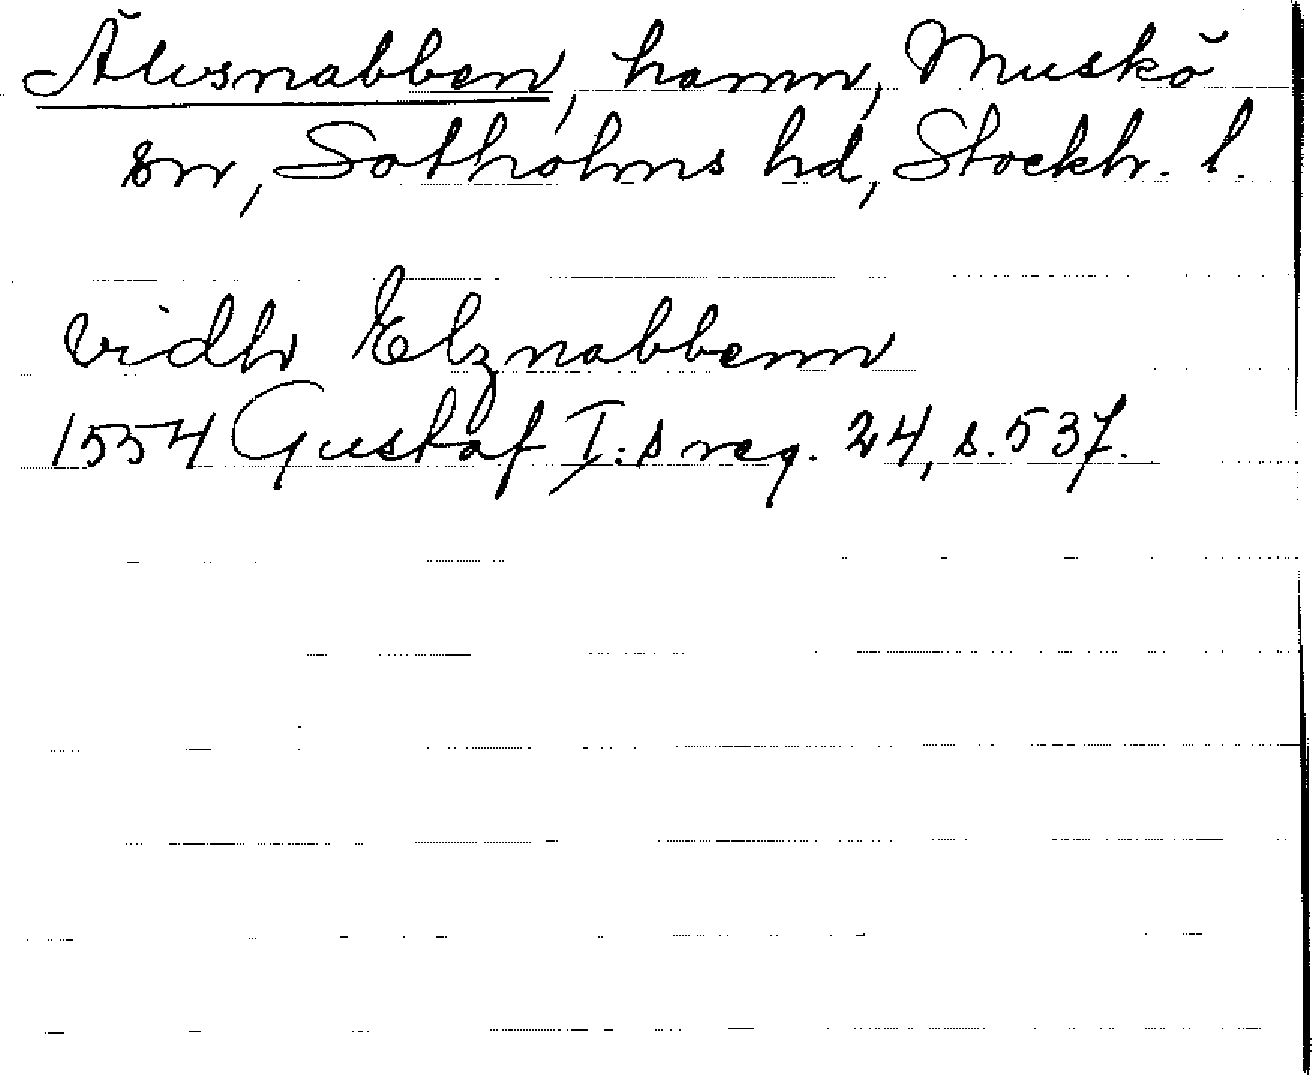 Älvsnabben, hamn, Muskö
sn, Sotholms hd, Stockh. l.
vidh Elznabbenn
1554 Gustaf I:s reg. 24, s. 537.